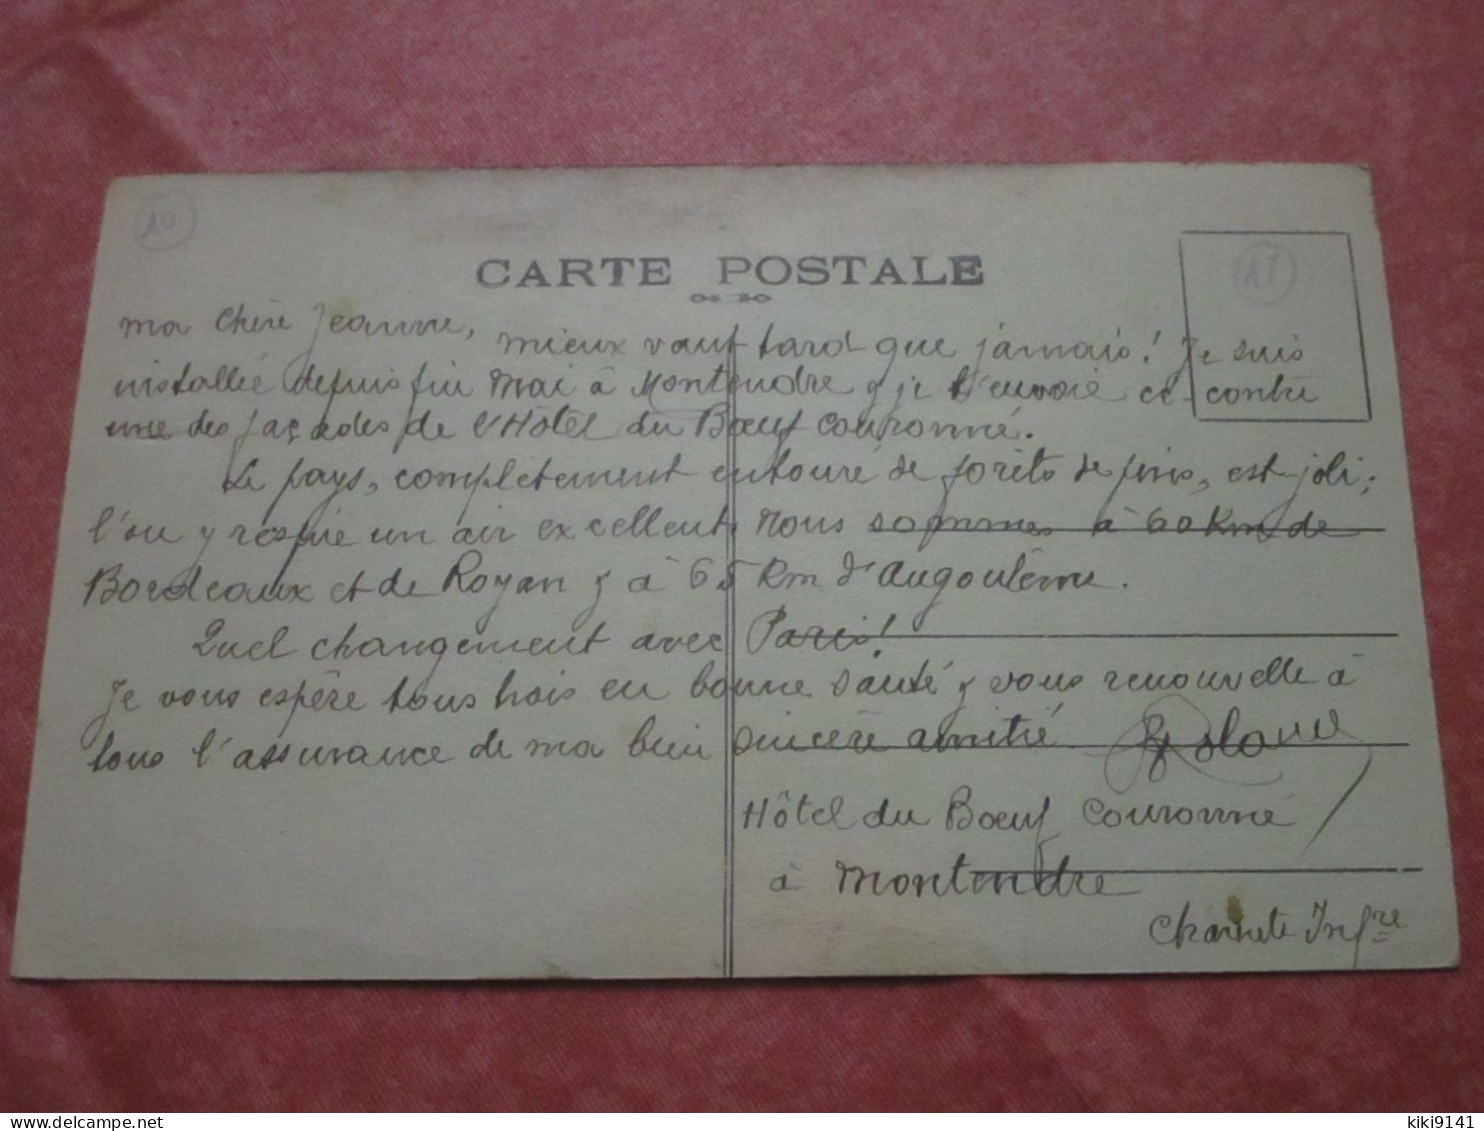 10
17
CARTE POSTALE
Ma chère Jeanne, mieux vaut tard que jamais! Je suis
installée depuis fin Mai à Montendre & je t'envoie ci-contre
une des façades de l'Hôtel du Bœuf Couronné.
Le pays, complètement entouré de forêts de pins, est joli;
l'on y respire un air excellent. Nous sommes à 60 Km de
Bordeaux et de Royan & à 65 Km d'Angoulême.
Quel changement avec Paris!
Je vous espère tous trois en bonne santé & vous renouvelle à
tous l'assurance de ma bien sincère amitié
Hôtel du Bœuf Couronné
à Montendre
Charente Infre
kiki9141